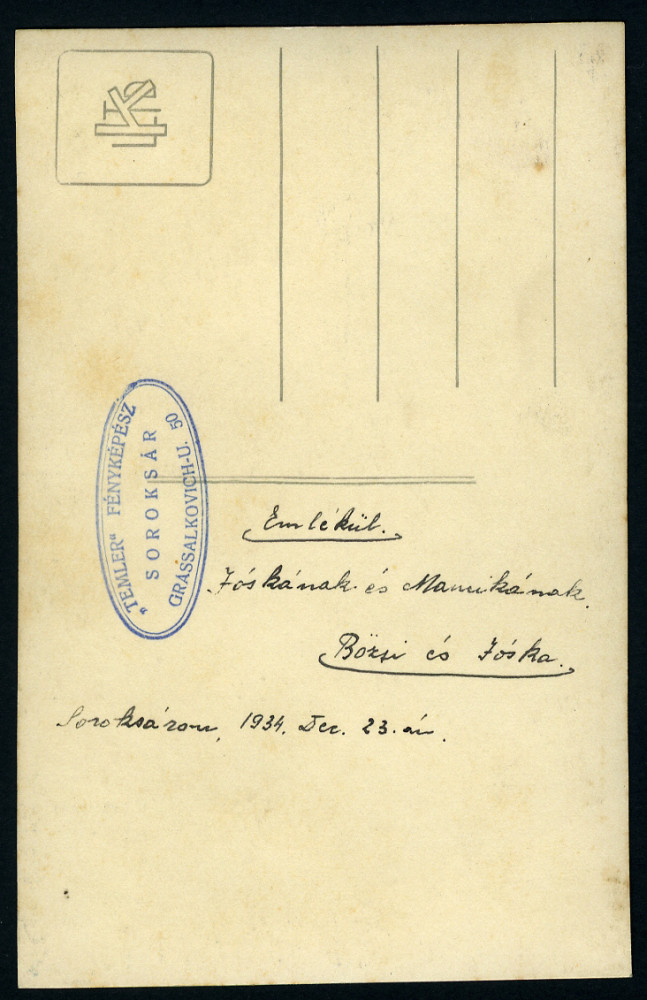 „TEMLER“ FÉNYKÉPÉSZ
SOROKSÁR
GRASSALKOVICH-U. 50
Emlékül.
Jóskának és Mancikának.
Bözsi és Jóska.
Soroksáron, 1934. Dec. 23.-án.